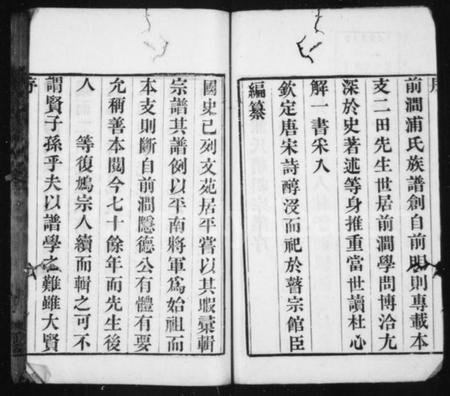 序
前澗浦氏族譜創自前明則專載本
支二田先生世居前澗學問博洽尢
深於史著述等身推重當世讀杜心
解一書采入
欽定唐宋詩醇沒而祀於瞽宗館臣
編纂
國史已列文苑居平嘗以其暇彙輯
宗譜其譜例以平南將軍為始祖而
本支則斷自前澗隱德公有體有要
允稱善本閱今七十餘年而先生後
人 等復馮宗人續而輯之可不
謂賢子孫乎夫以譜學之難雖大賢
序